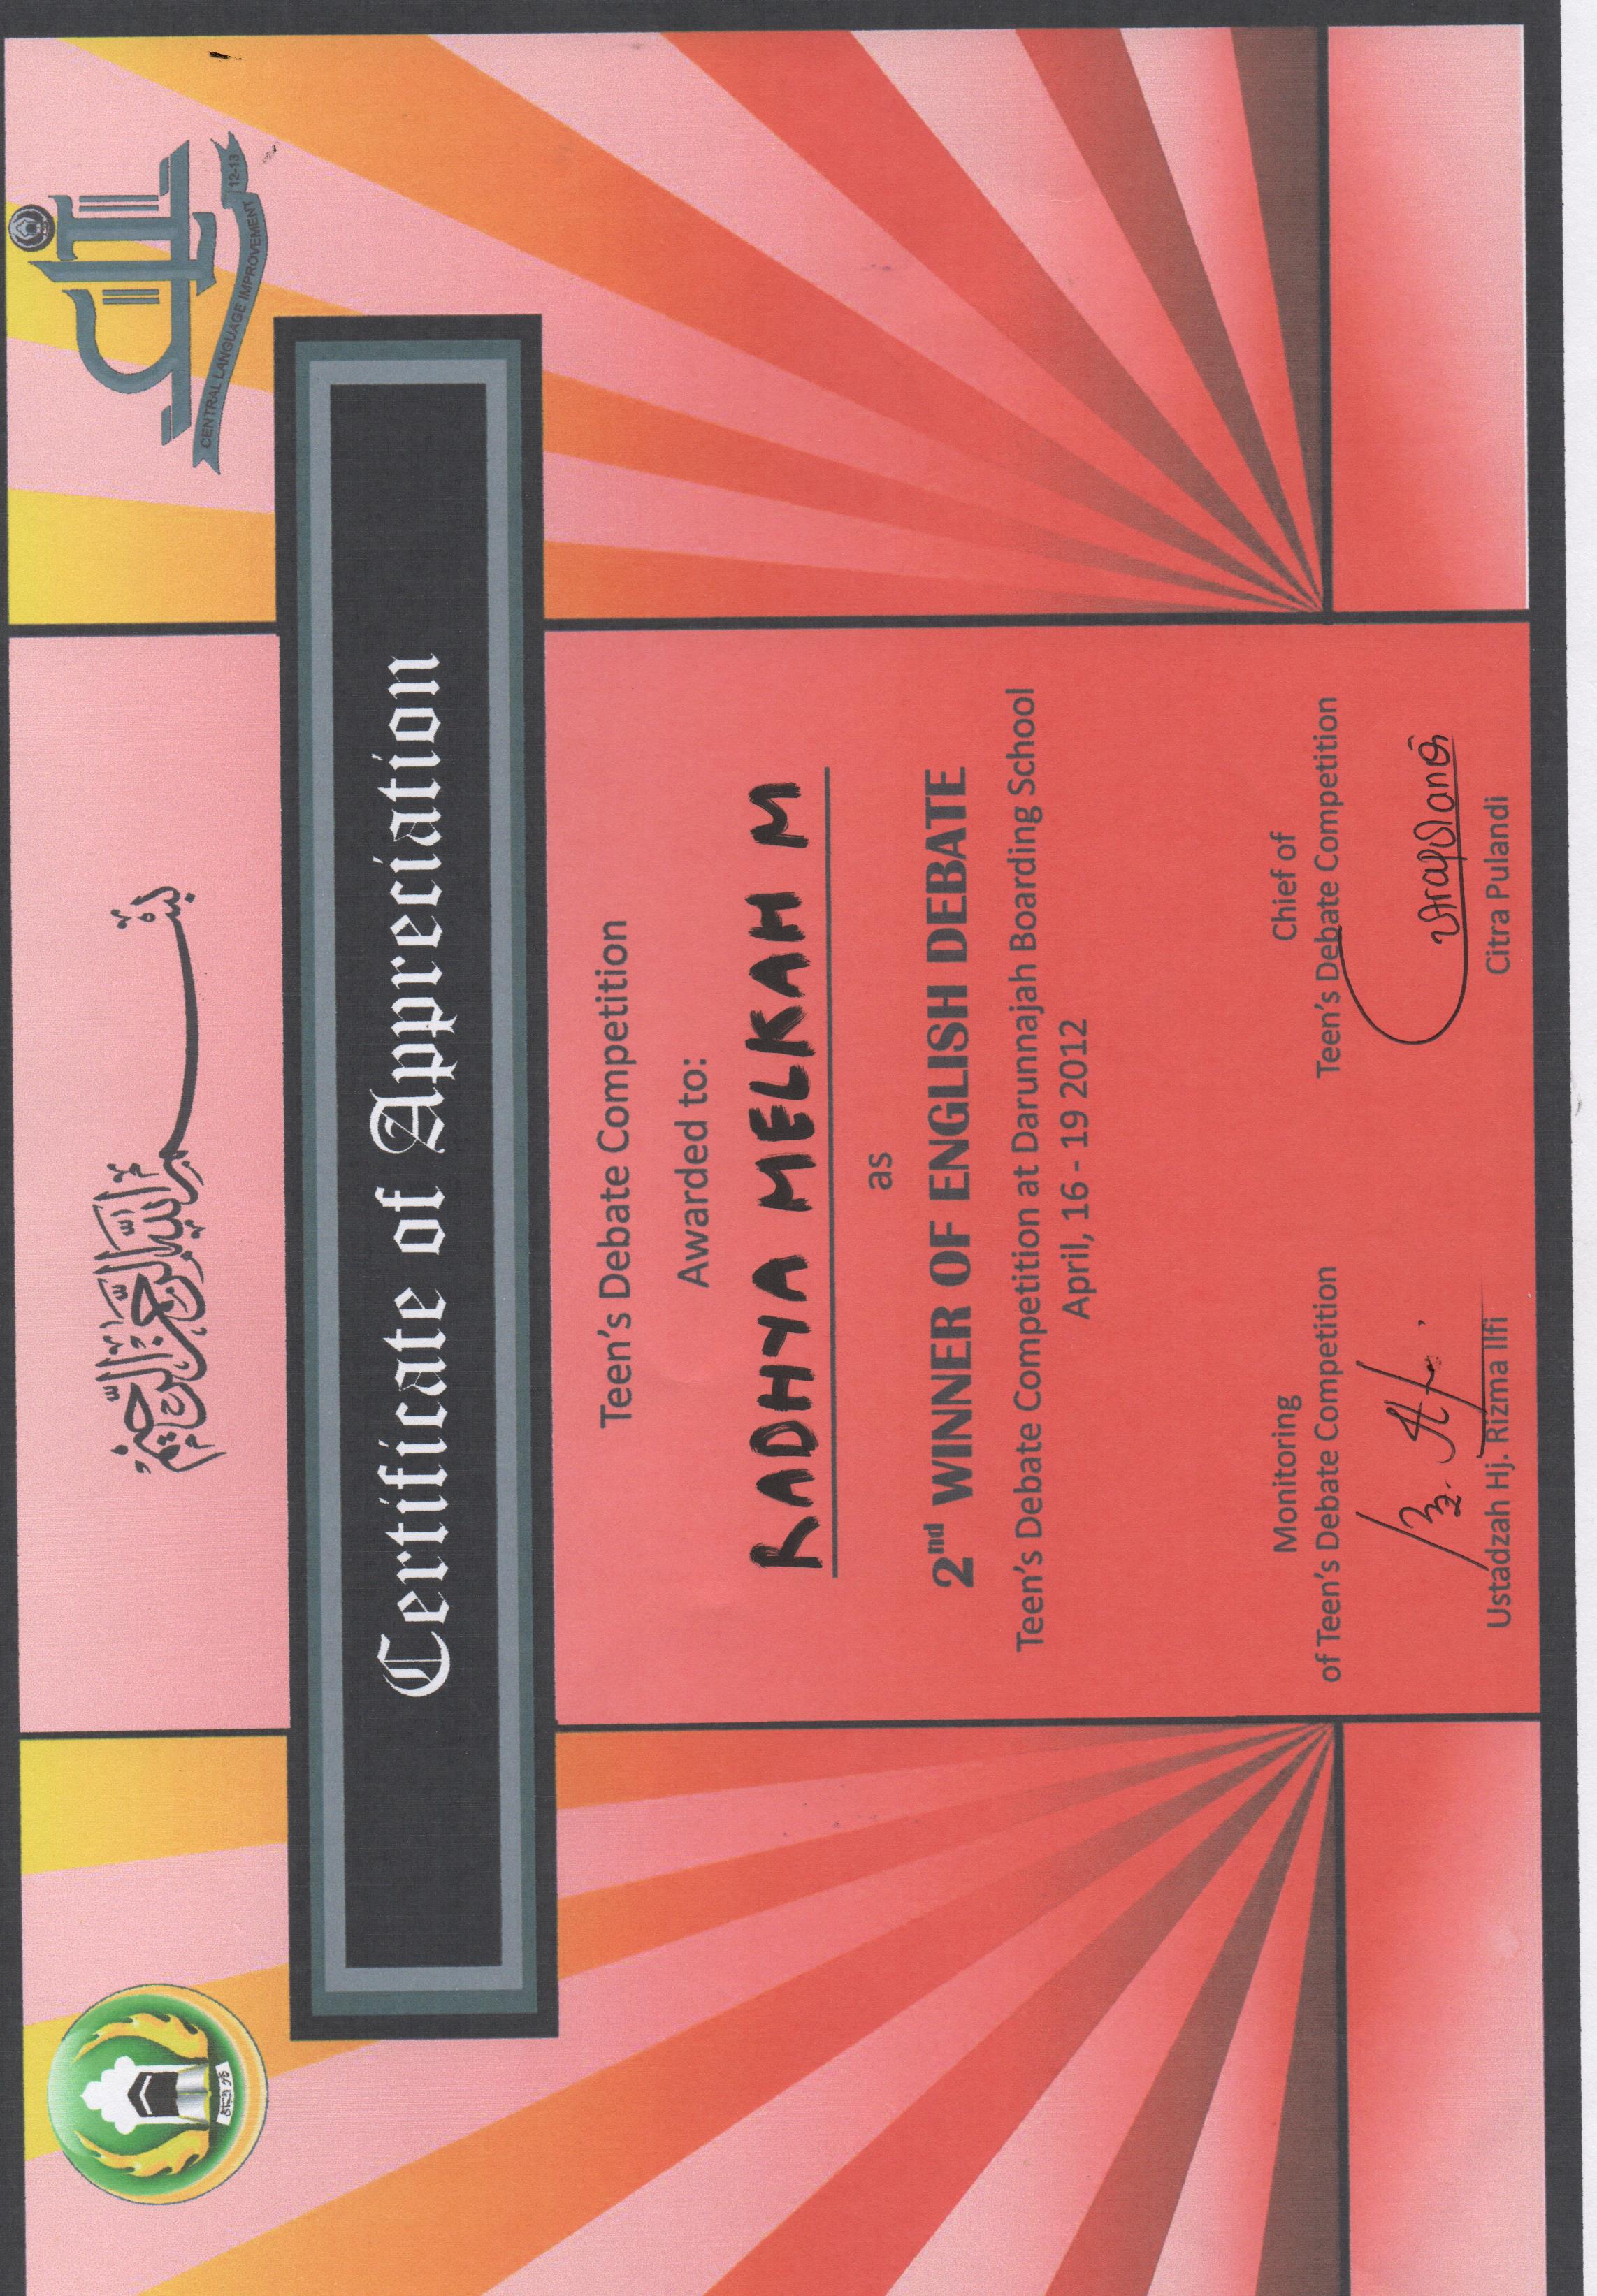 CENTRAL LANGUAGE IMPROVEMENT 12-13
بسم الله الرحمن الرحيم
Certificate of Appreciation
Teen's Debate Competition
Awarded to:
RADHYA MELKAH M
as
2nd WINNER OF ENGLISH DEBATE
Teen's Debate Competition at Darunnajah Boarding School
April, 16 - 19 2012
Monitoring
of Teen's Debate Competition
Ustadzah Hj. Rizma Ilfi
Chief of
Teen's Debate Competition
Citra Pulandi